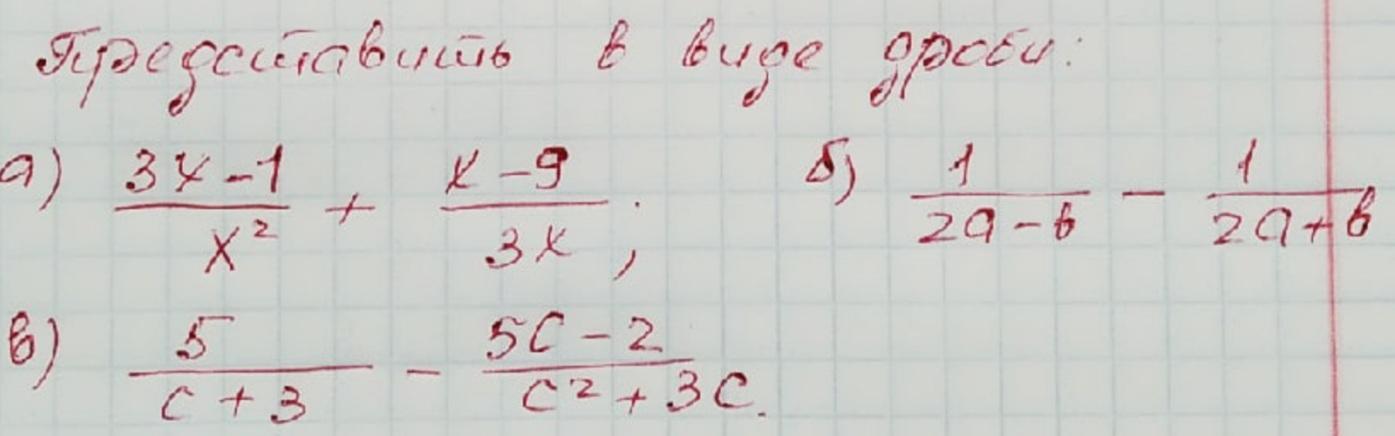 Представить в виде дроби:
а) (3x-1)/x² + (x-9)/3x; б) 1/(2a-b) - 1/(2a+b)
в) 5/(c+3) - (5c-2)/(c²+3c).